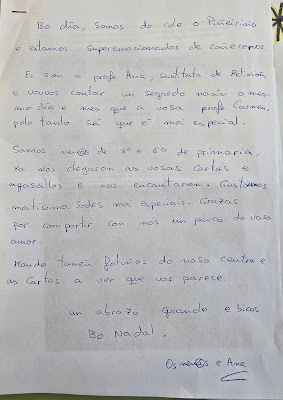 Bo día, Somos do cole o Piñeiriño
e estamos superemocionados de coñecervos
Eu son a profe Ana, sustituta de Felisa
e vouvos contar un segredo nacín o mesmo
día e mes que a vosa profe Carmen,
polo tanto sei que é moi especial.
Somos nen@s de 3º e 6º de primaria,
xa nos chegaron as vosas cartas e
agasallos e nos encantaron. Gustounos
moitísimo Sodes moi especiais. Grazas
por compartir con nós un pouco do voso
amor.
Mando tamén fotiños do noso centro e
as Cartas a ver que vos parece.
un abrazo grande e bicos
Bo Nadal.
Os nen@s e Ana